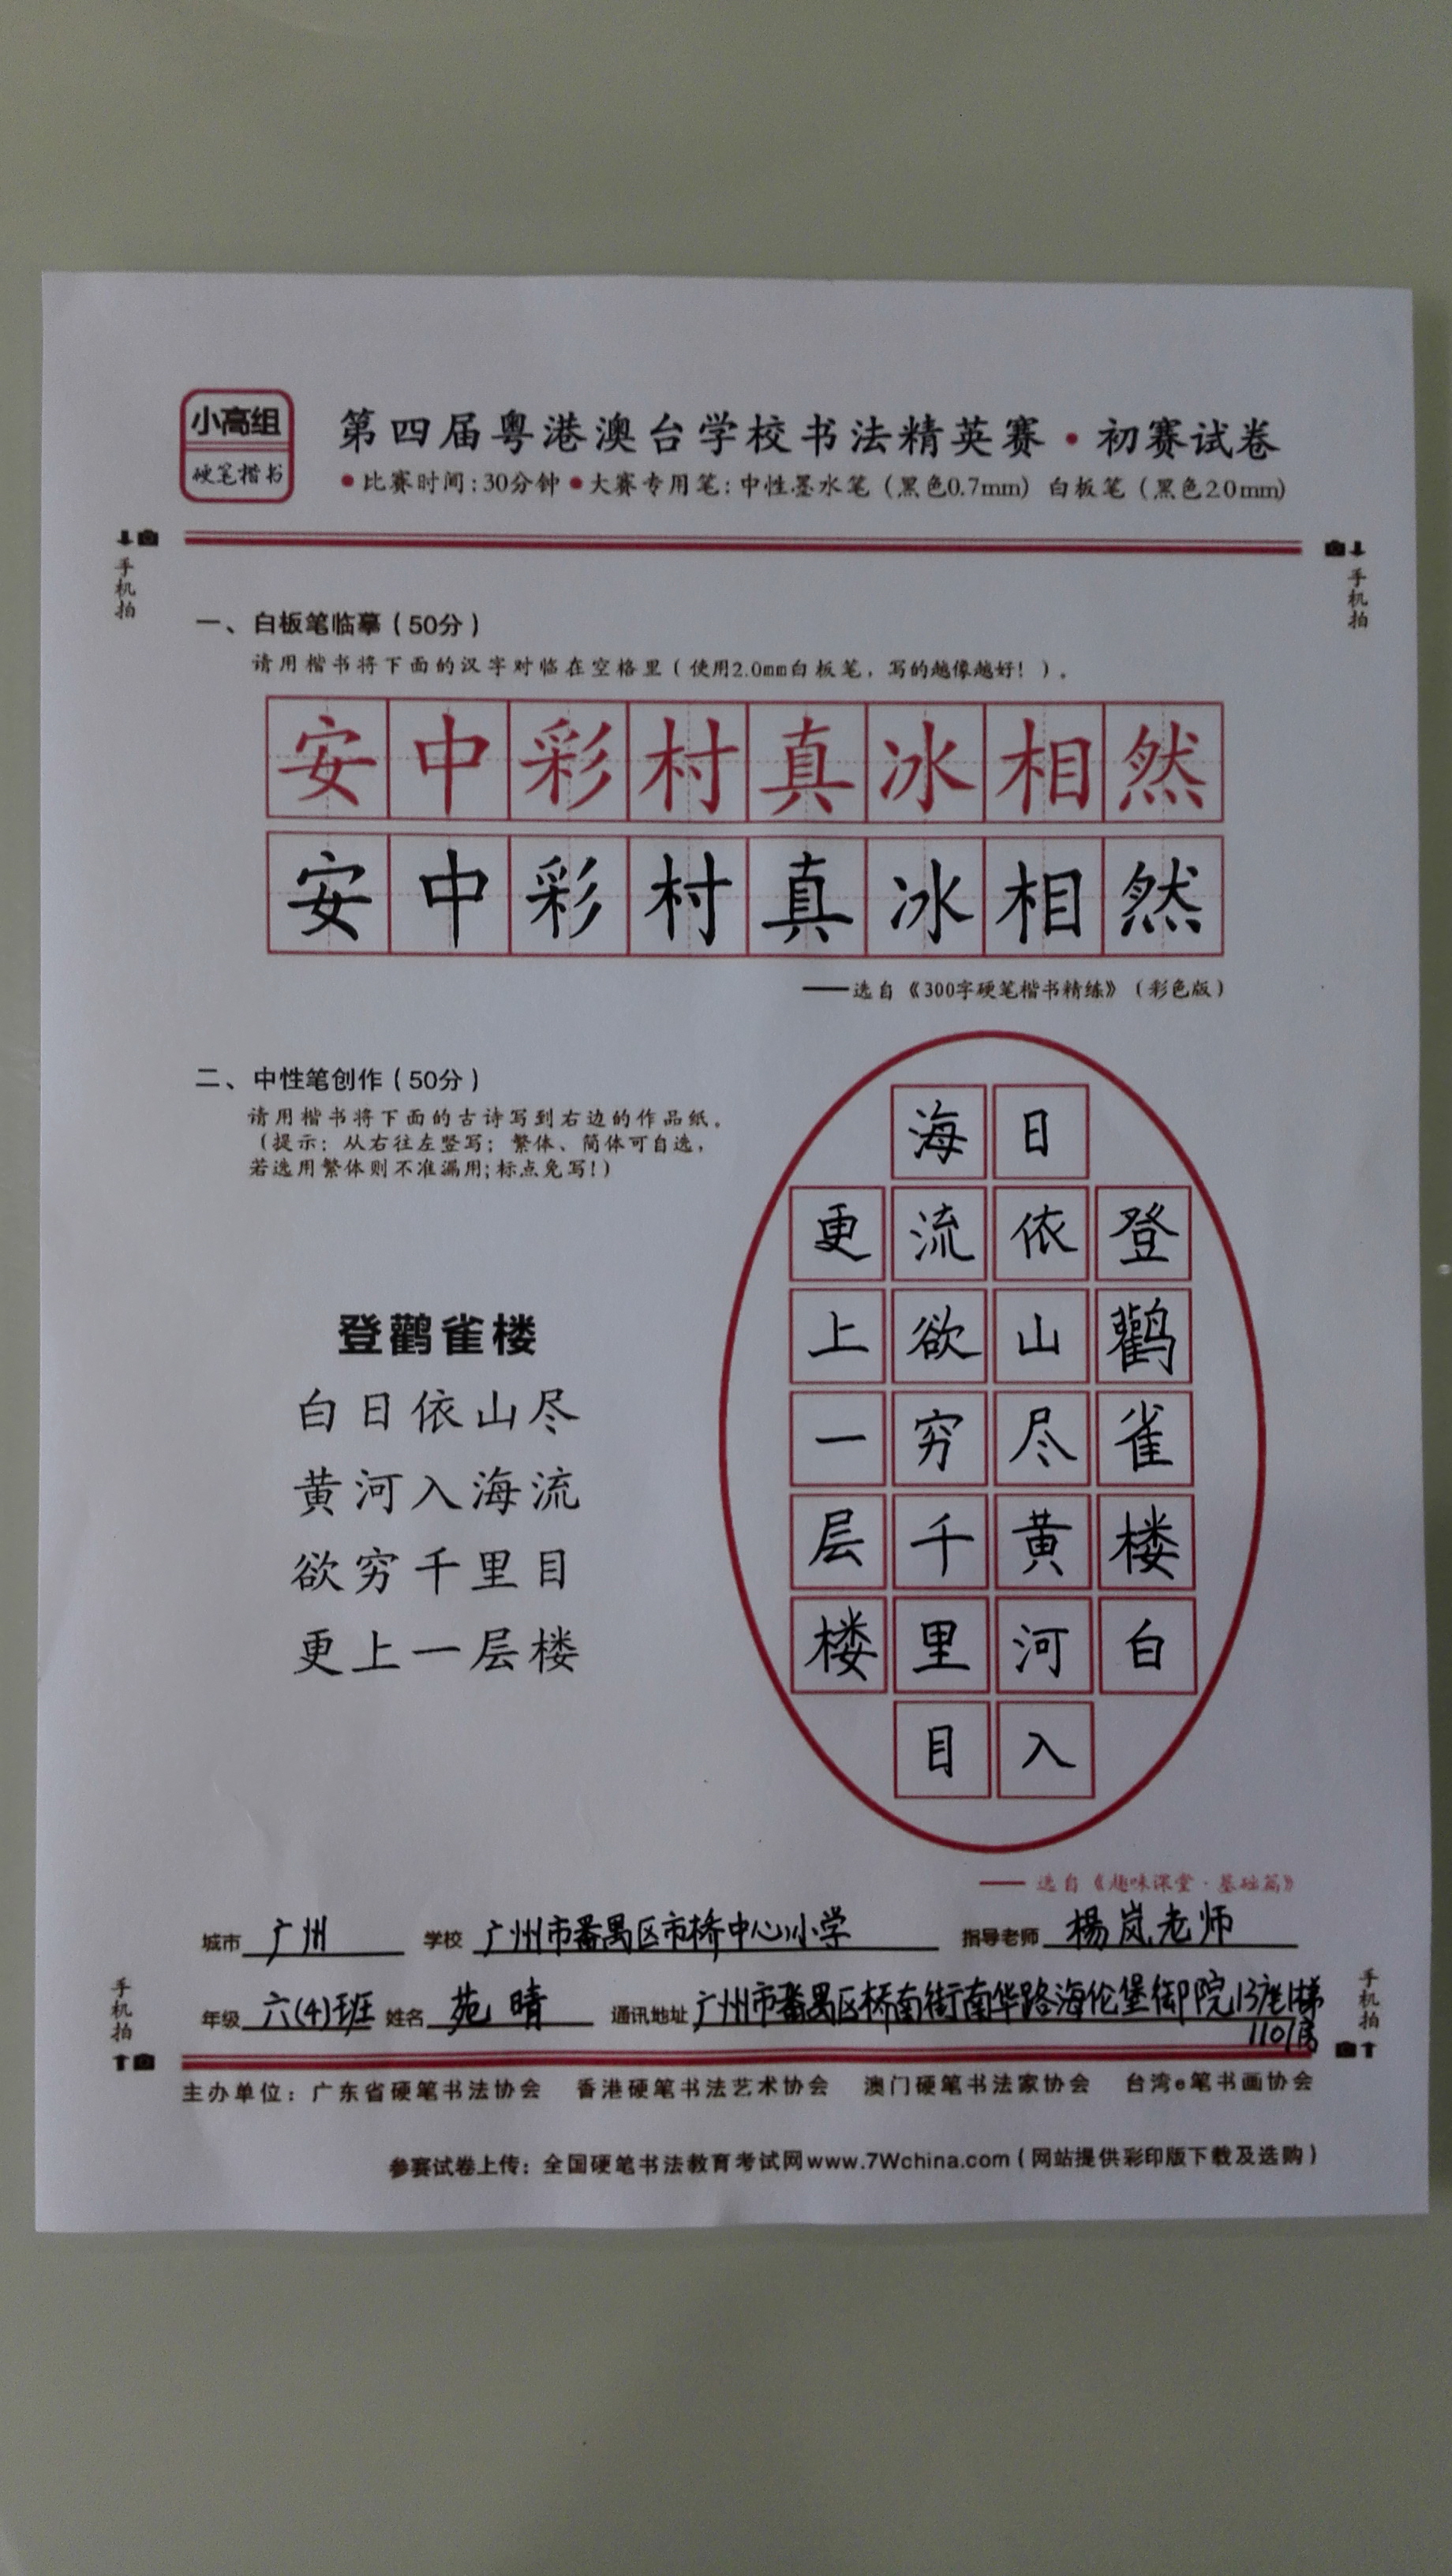 小高组
硬笔楷书
第四届粤港澳台学校书法精英赛·初赛试卷
●比赛时间:30分钟●大赛专用笔:中性墨水笔（黑色0.7mm） 白板笔（黑色2.0mm）
手机拍
手机拍
一、白板笔临摹（50分）
请用楷书将下面的汉字对临在空格里（使用2.0mm白板笔，写的越像越好！）。
安中彩村真冰相然
安中彩村真冰相然
——选自《300字硬笔楷书精练》（彩色版）
二、中性笔创作（50分）
请用楷书将下面的古诗写到右边的作品纸。
（提示：从右往左竖写；繁体、简体可自选，
若选用繁体则不准漏用;标点免写!）
登鹳雀楼
白日依山尽
黄河入海流
欲穷千里目
更上一层楼
登鹳雀楼白
日依山尽黄河入
海流欲穷千里目
更上一层楼
——选自《趣味课堂·基础篇》
城市 广州 学校 广州市番禺区市桥中心小学 指导老师 楊岚老师
年级 六(4)班 姓名 苑晴 通讯地址 广州市番禺区桥南街南华路海伦堡御院13座1梯
1101房
手机拍
手机拍
主办单位：广东省硬笔书法协会 香港硬笔书法艺术协会 澳门硬笔书法家协会 台湾e笔书画协会
参赛试卷上传：全国硬笔书法教育考试网www.7Wchina.com（网站提供彩印版下载及选购）